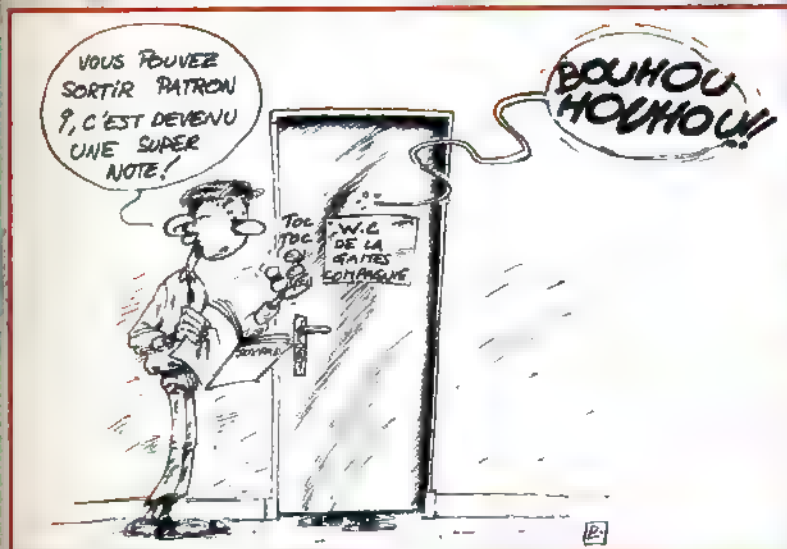 VOUS POUVEZ
SORTIR PATRON
?, C'EST DEVENU
UNE SUPER
NOTE!
BOUHOU
HOUHOU!!
TOC
TOC
W.C
DE LA
GAMES
COMPAGNIE